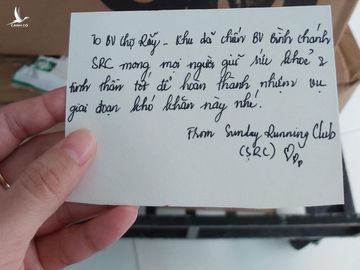 To BV Chợ Rẫy - Khu dã chiến BV Bình Chánh
SRC mong mọi người giữ sức khoẻ &
tinh thần tốt để hoàn thành nhiệm vụ
giai đoạn khó khăn này nhé.
From Sunday Running Club
(SRC)